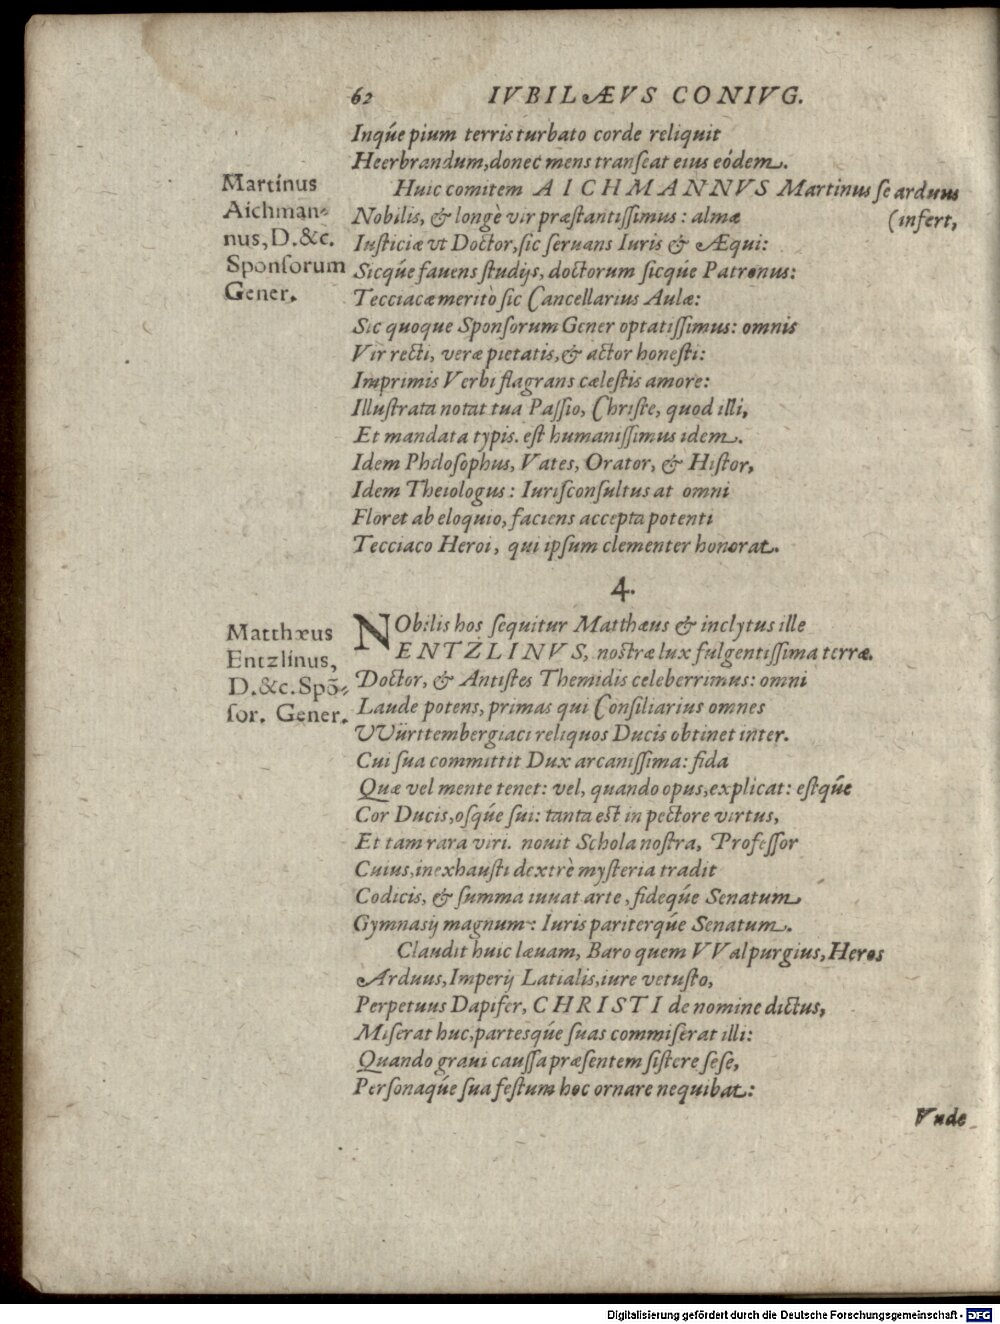 62 IVBILÆVS CONIVG.
Inqúe pium terris turbato corde reliquit
Heerbrandum, donec mens transeat eius eódem.
Martinus
Aichman-
nus, D. &c.
Sponsorum
Gener.
Huic comitem AICHMANNVS Martinus se arduus
(infert,
Nobilis, & longè vir præstantissimus: almæ
Iusticiæ vt Doctor, sic seruans Iuris & Æqui:
Sicqúe fauens studijs, doctorum sicqúe Patronus:
Tecciacæ meritò sic Cancellarius Aulæ:
Sic quoque Sponsorum Gener optatissimus: omnis
Vir recti, veræ pietatis, & actor honesti:
Imprimis Verbi flagrans cælestis amore:
Illustrata notat tua Passio, Christe, quod illi,
Et mandata typis. est humanissimus idem.
Idem Philosophus, Vates, Orator, & Histor,
Idem Theiologus: Iurisconsultus at omni
Floret ab eloquio, faciens accepta potenti
Tecciaco Heroi, qui ipsum clementer honorat.
4.
Matthæus
Entzlinus,
D. &c. Spõ-
sor. Gener.
NObilis hos sequitur Matthæus & inclytus ille
ENTZLINVS, nostræ lux fulgentissima terræ.
Doctor, & Antistes Themidis celeberrimus: omni
Laude potens, primas qui Consiliarius omnes
VVürttembergiaci reliquos Ducis obtinet inter.
Cui sua committit Dux arcanissima: fida
Quæ vel mente tenet: vel, quando opus, explicat: estqúe
Cor Ducis, osqúe sui: tanta est in pectore virtus,
Et tam rara viri. nouit Schola nostra, Professor
Cuius, inexhausti dextrè mysteria tradit
Codicis, & summa iuuat arte, fideqúe Senatum
Gymnasij magnum: Iuris pariterqúe Senatum.
Claudit huic læuam, Baro quem VValpurgius, Heros
Arduus, Imperij Latialis, iure vetusto,
Perpetuus Dapifer, CHRISTI de nomine dictus,
Miserat huc, partesqúe suas commiserat illi:
Quando graui caussa præsentem sistere sese,
Personaqúe sua festum hoc ornare nequibat:
Vnde
Digitalisierung gefördert durch die Deutsche Forschungsgemeinschaft - DFG